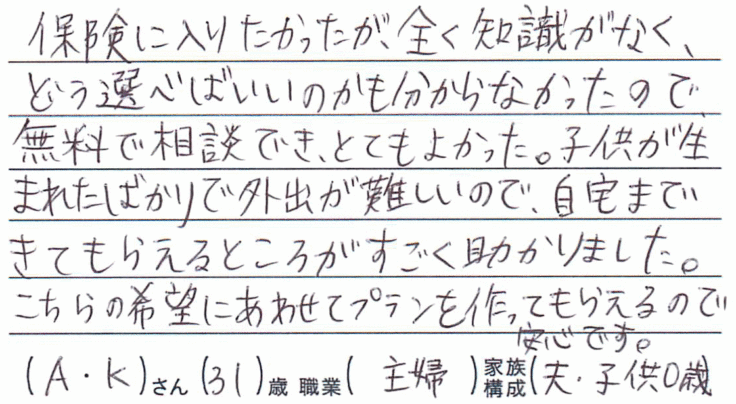 保険に入りたかったが、全く知識がなく、
どう選べばいいのかも分からなかったので
無料で相談でき、とてもよかった。子供が生
まれたばかりで外出が難しいので、自宅まで
きてもらえるところがすごく助かりました。
こちらの希望にあわせてプランを作ってもらえるので
安心です。
(A・K)さん(31)歳 職業(主婦)家族構成(夫・子供0歳